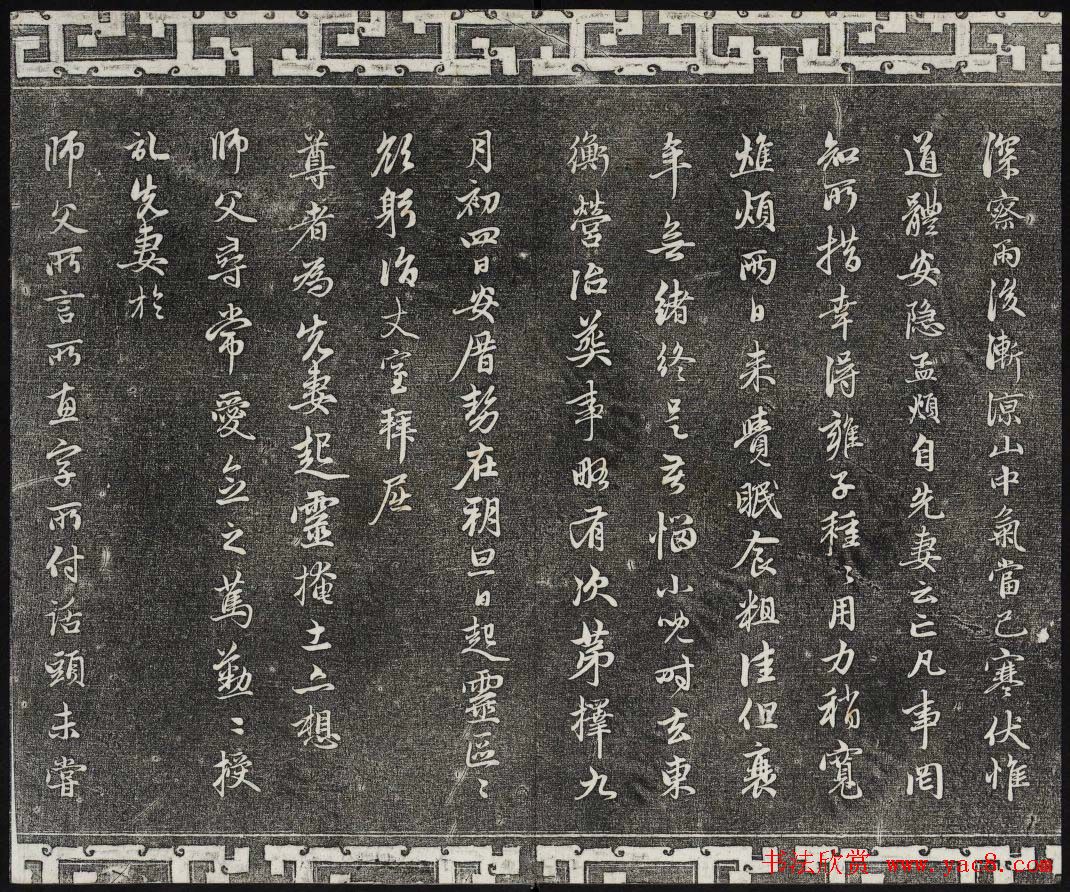 深察雨後漸涼山中氣當已寒伏惟
道體安隐孟頫自先妻云亡凡事罔
知所措幸得雍子種〻用力稍寬
燋煩兩日来覺眠食粗佳但衰
年無緒終是苦惱小兒時去東
衡營治葬事略有次第擇九
月初四日安厝勢在朔旦日起靈區〻
欲躬詣丈室拜屈
尊者為先妻起靈掩土亦想
師父尋常愛念之篤勤〻授
記先妻於
師父所言所直字所付話頭未嘗
书法欣赏 www.yac8.com